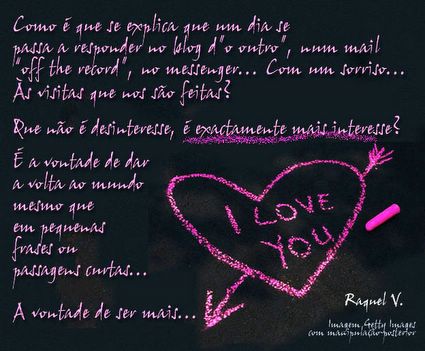 Como é que se explica que um dia se
passa a responder no blog d"o outro", num mail
"off the record", no messenger... Com um sorriso...
Às visitas que nos são feitas?
Que não é desinteresse, é exactamente mais interesse?
É a vontade de dar
a volta ao mundo
mesmo que
em pequenas
frases ou
passagens curtas...
A vontade de ser mais...
I LOVE
YOU
Raquel V.
Imagem,Getty Images
com manipulação posterior